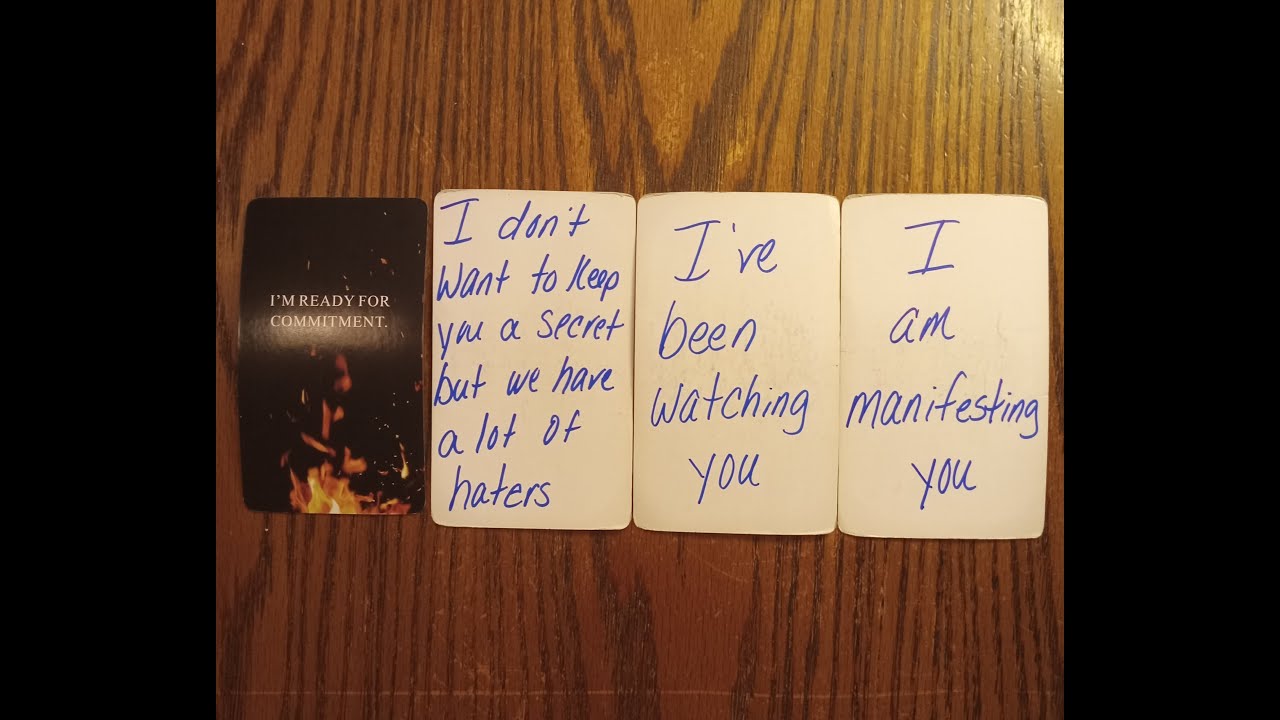 I'M READY FOR
COMMITMENT.
I don't
want to keep
you a secret
but we have
a lot of
haters
I've
been
watching
you
I
am
manifesting
you